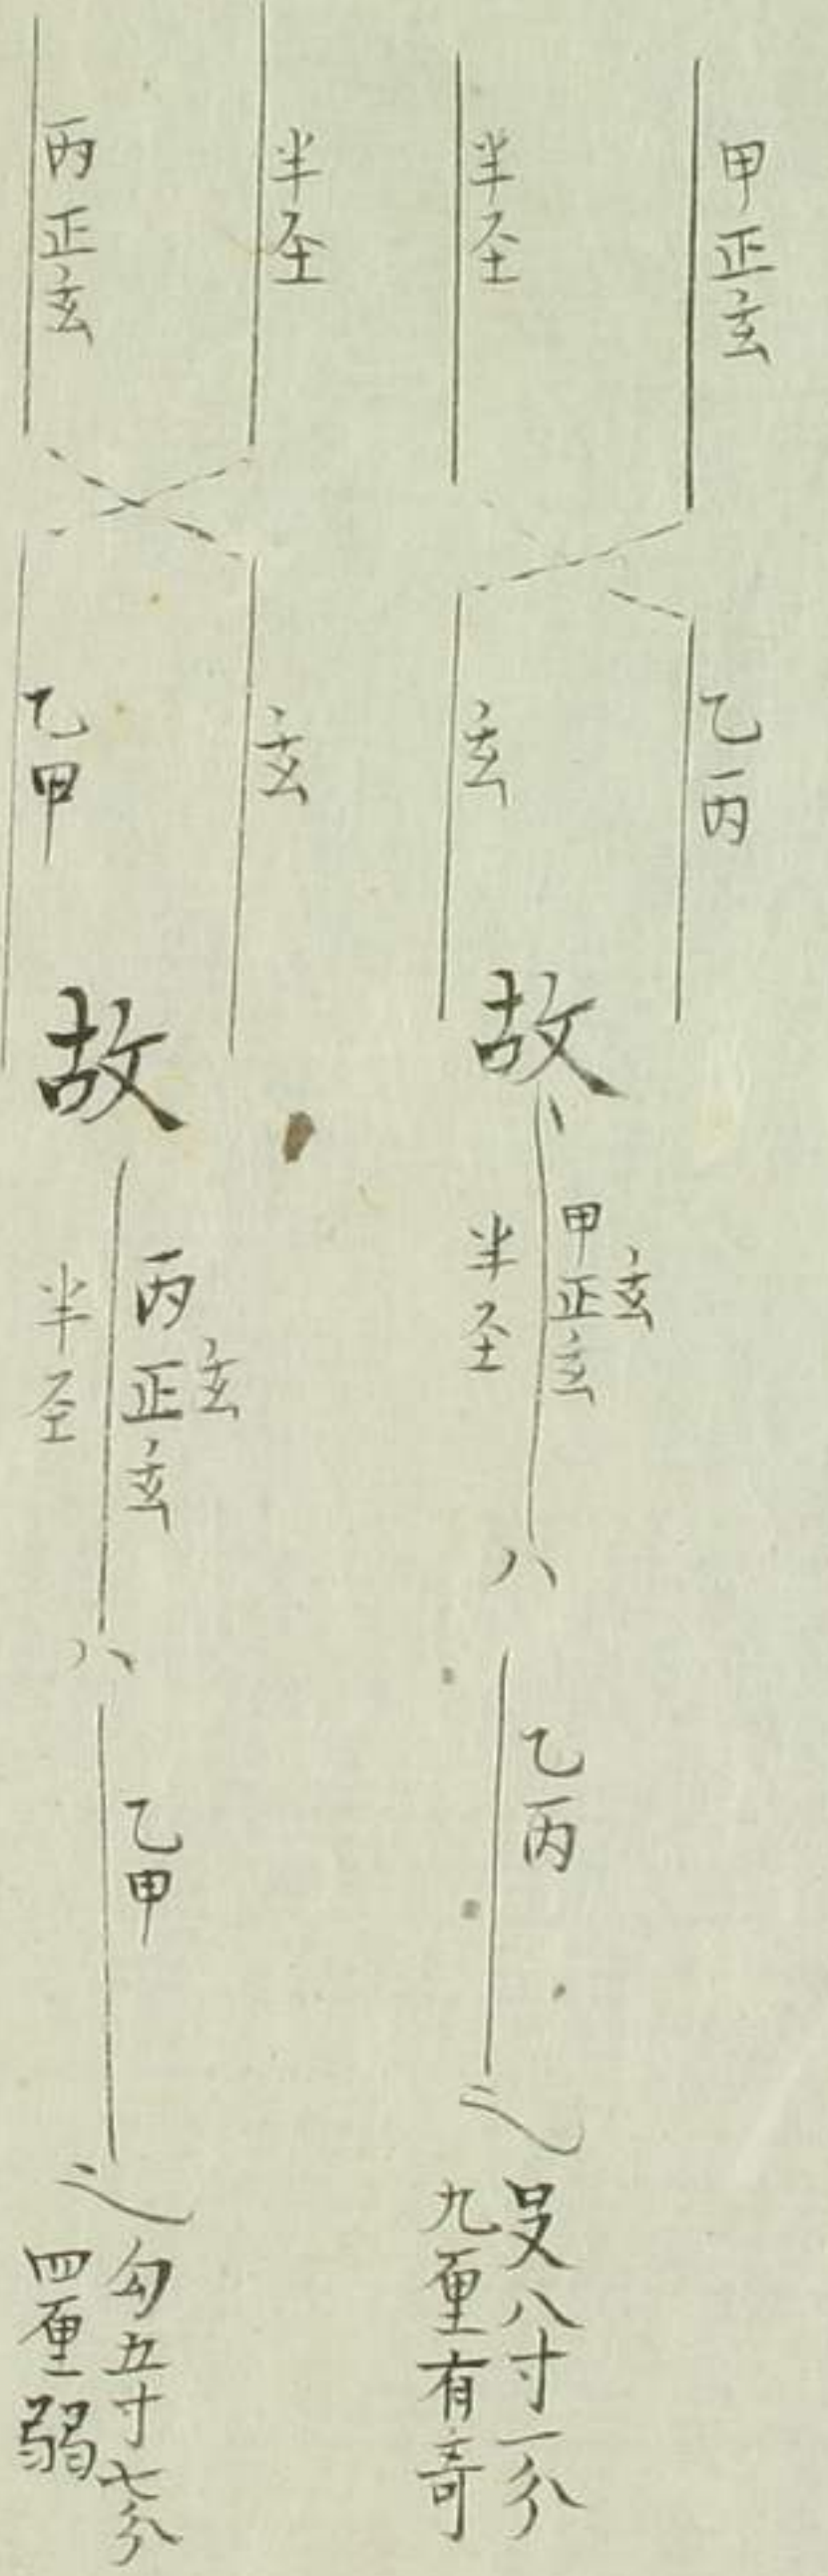 甲正玄
乙丙
半圣
玄
故
甲正玄
玄
半圣
八
乙丙
之
殳八寸一分
九厘有奇
半圣
玄
丙正玄
乙甲
故
丙正玄
玄
半圣
八
乙甲
之
勾五寸七分
四厘弱